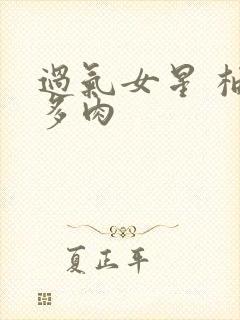 過氣女星 柚
多肉
夏正年